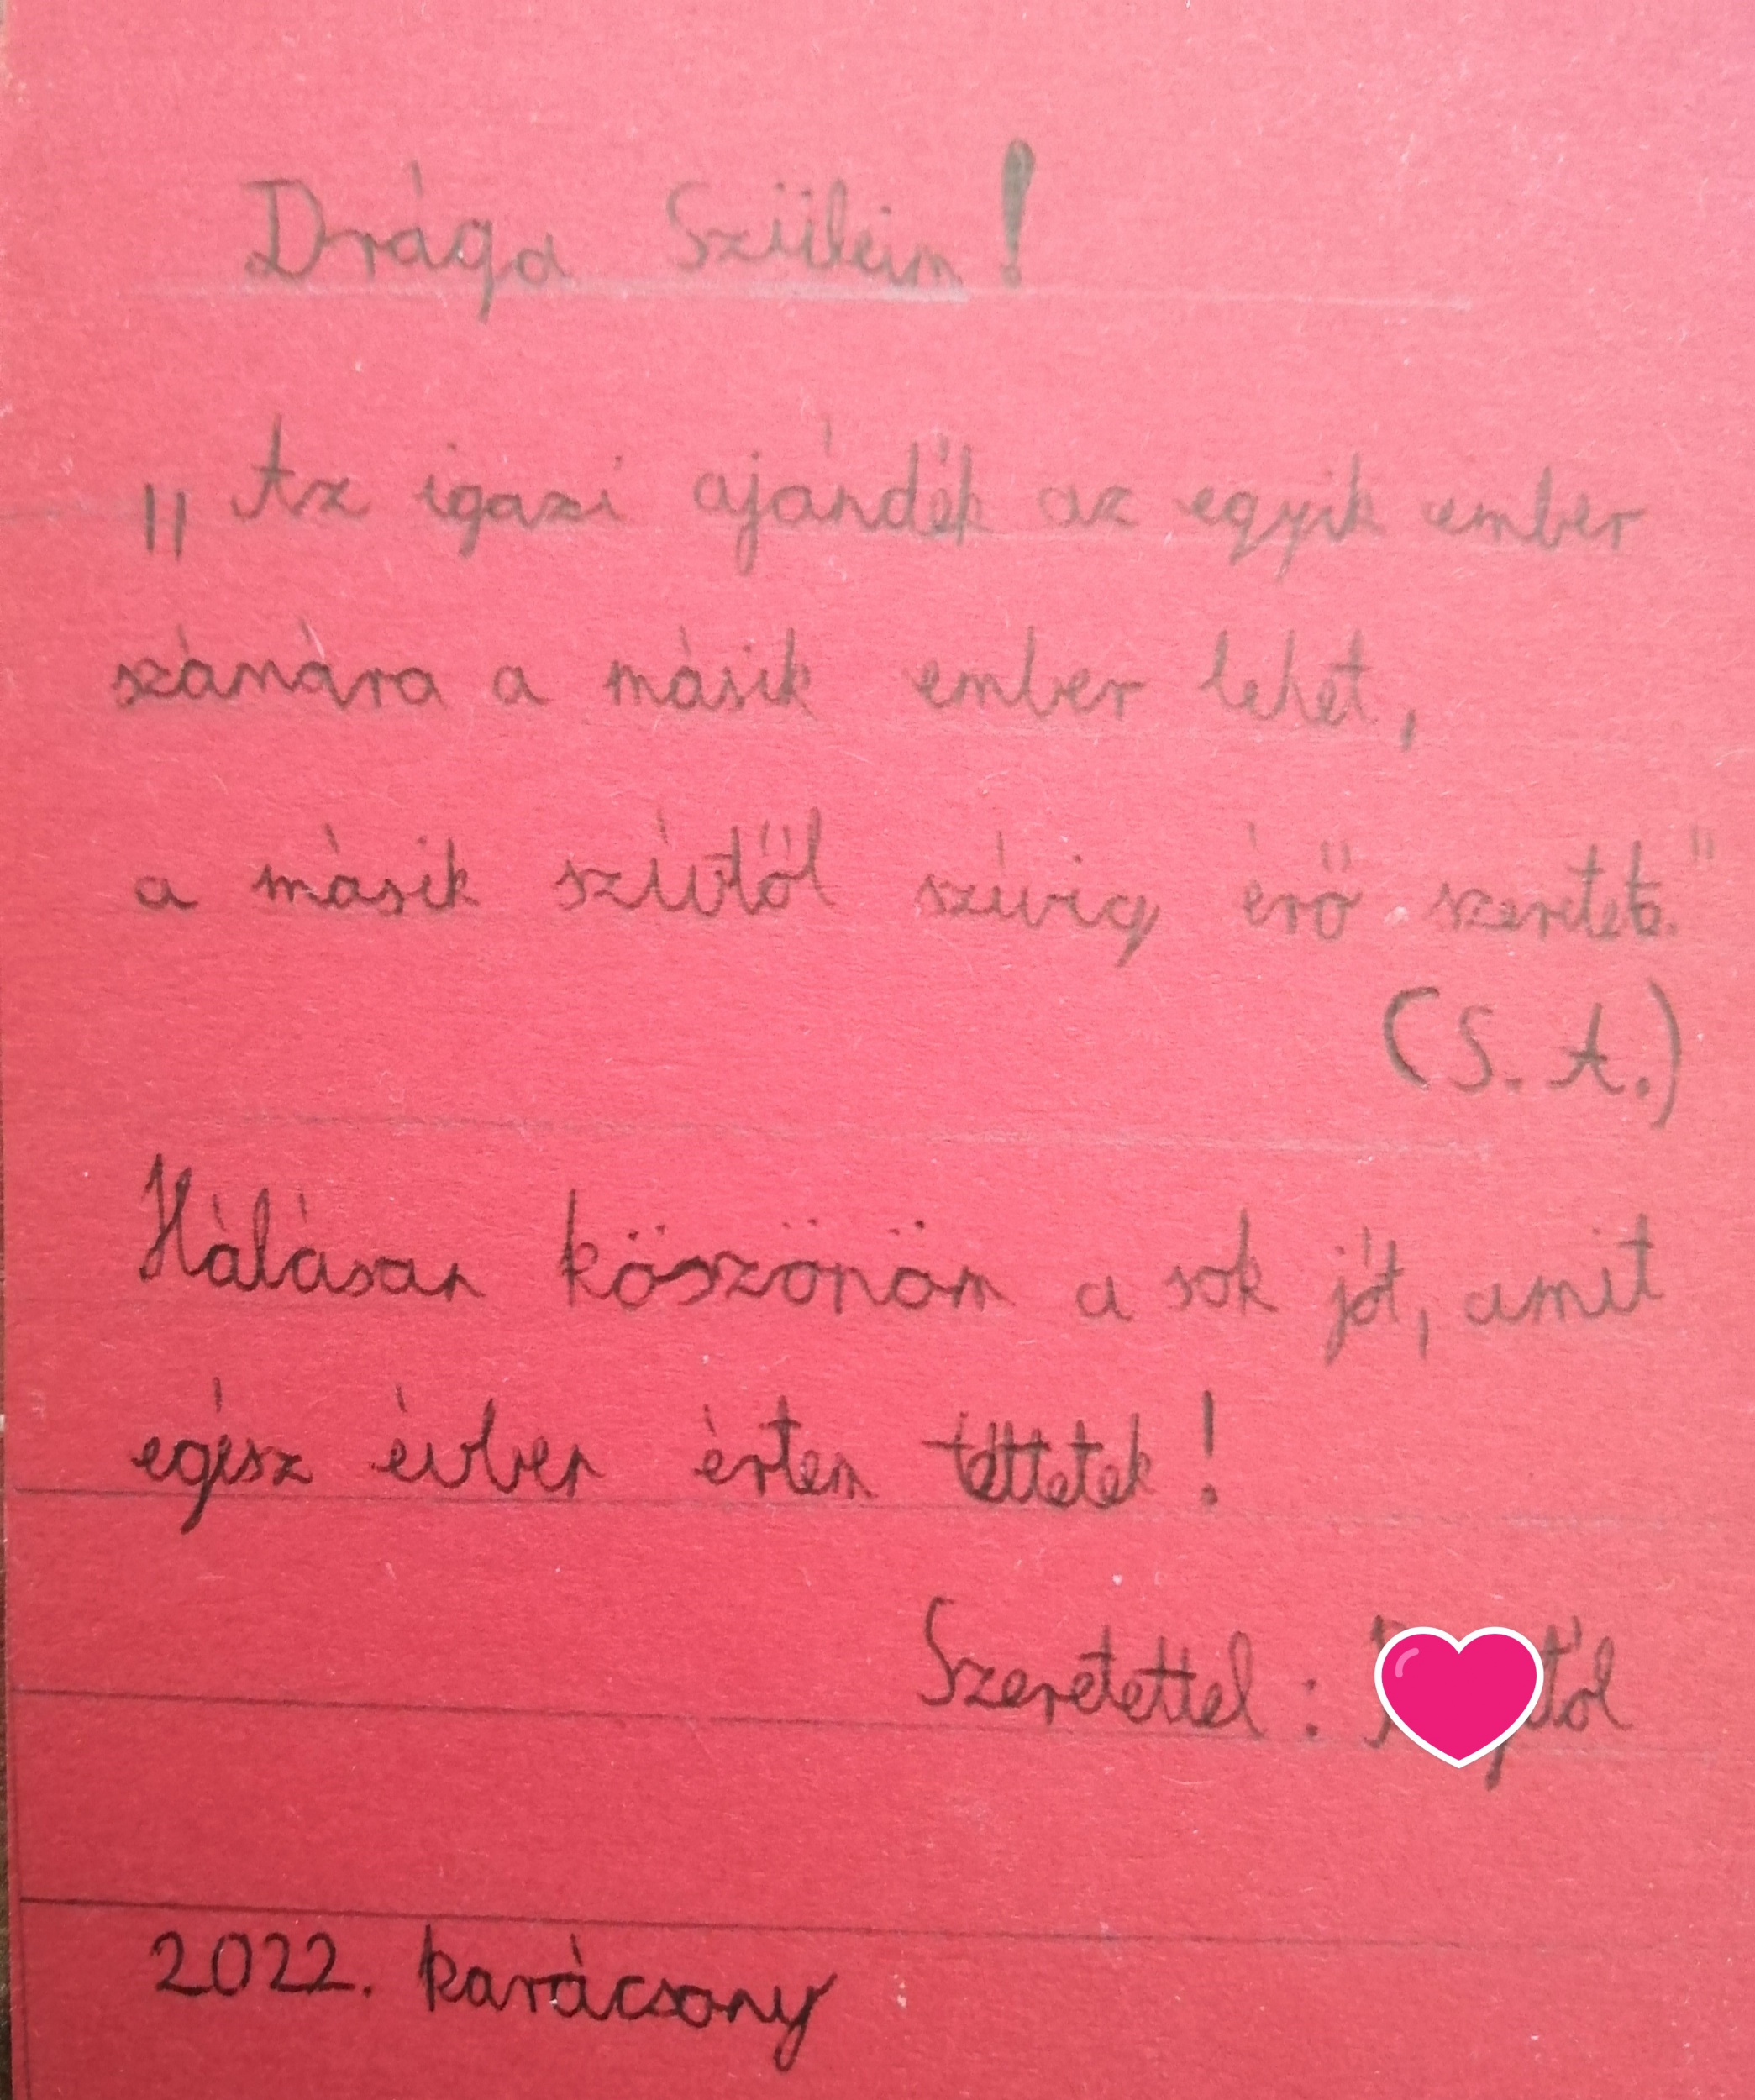 Drága Szüleim!
„Az igazi ajándék az egyik ember
számára a másik ember lehet,
a másik szívtől szívig érő szeretet."
(S. A.)
Hálásan köszönöm a sok jót, amit
egész évben értem tettetek!
Szeretettel:
2022. karácsony